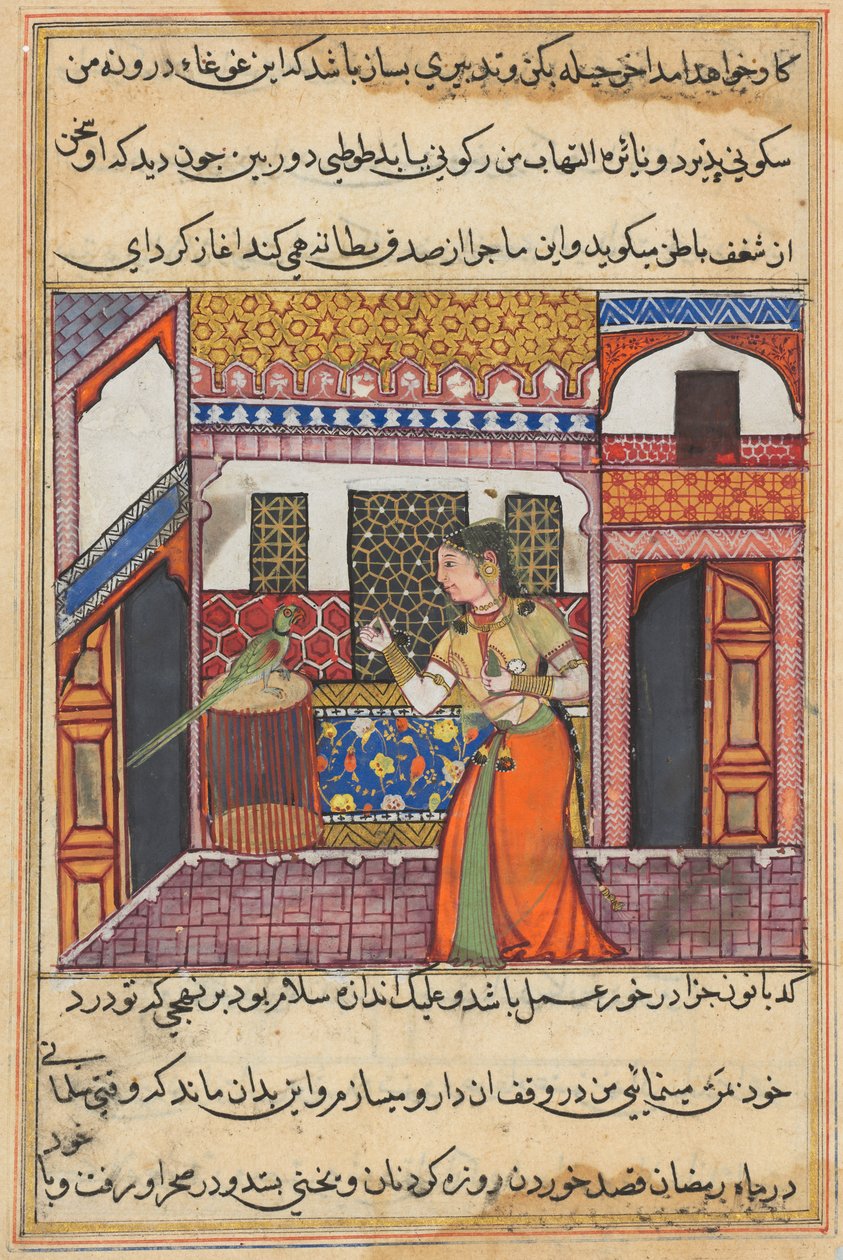 کا و خواهد امد اخر حیله بکن و تدبیری بساز باشد که این غوغاء درونه من
سکونی پذیرد و نایره التهاب من رکونی یابد طوطی دور بین چون دید که او سخن
از شغف باطن میکوید و این ماجرا از صدق بطانه همی کند اغاز کرد ای
کدبانو جزا در خور عمل باشد و علیک اندازه سلام بود بر نهجی که تو درد
خود بمن مینمائی من در وقف ان دارو میسازم و این بدان ماند که وقتی
در ماه رمضان قصد خوردن روزه کرد نان و یختی بستد و در صحرا و رفت و با خود